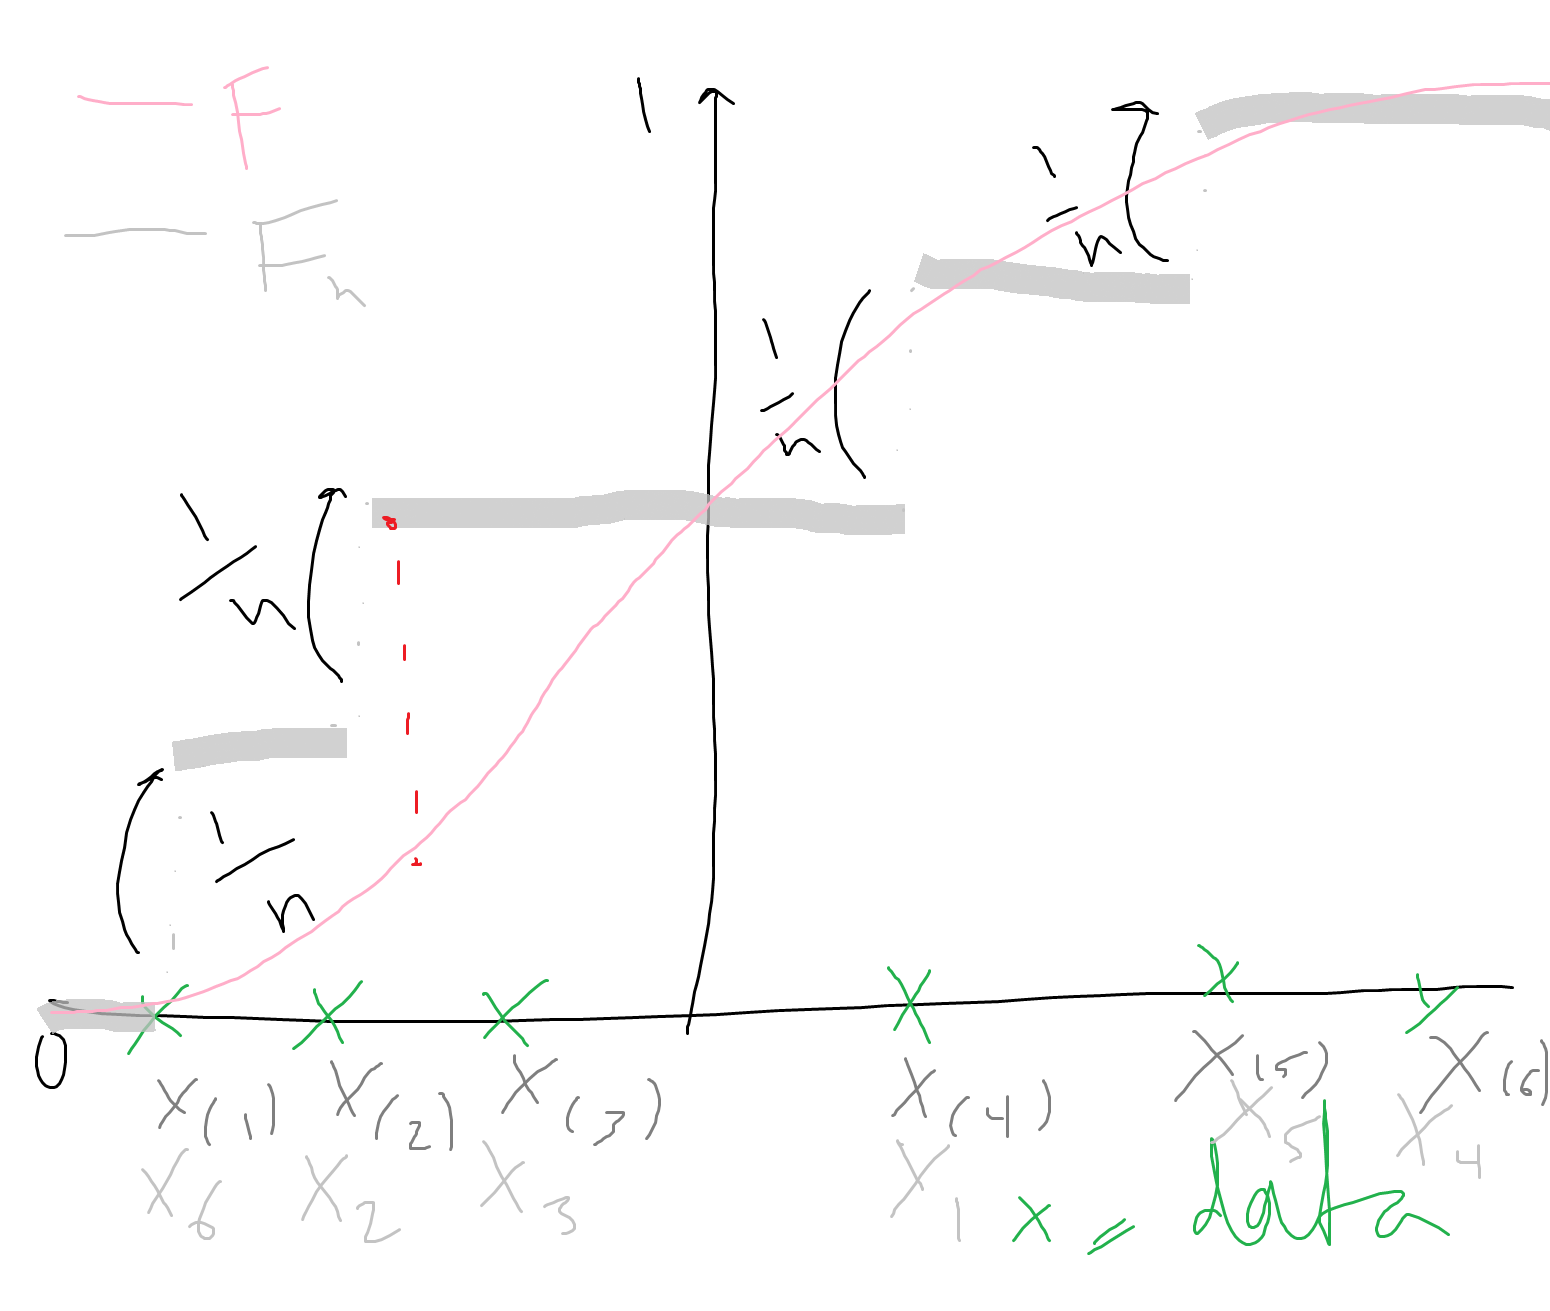 F
1
F_n
1/n
1/n
1/n
1/n
0
X_(1) X_(2) X_(3) X_(4) X_(5) X_(6)
X_6 X_2 X_3 X_1 X_5 X_4
x = data